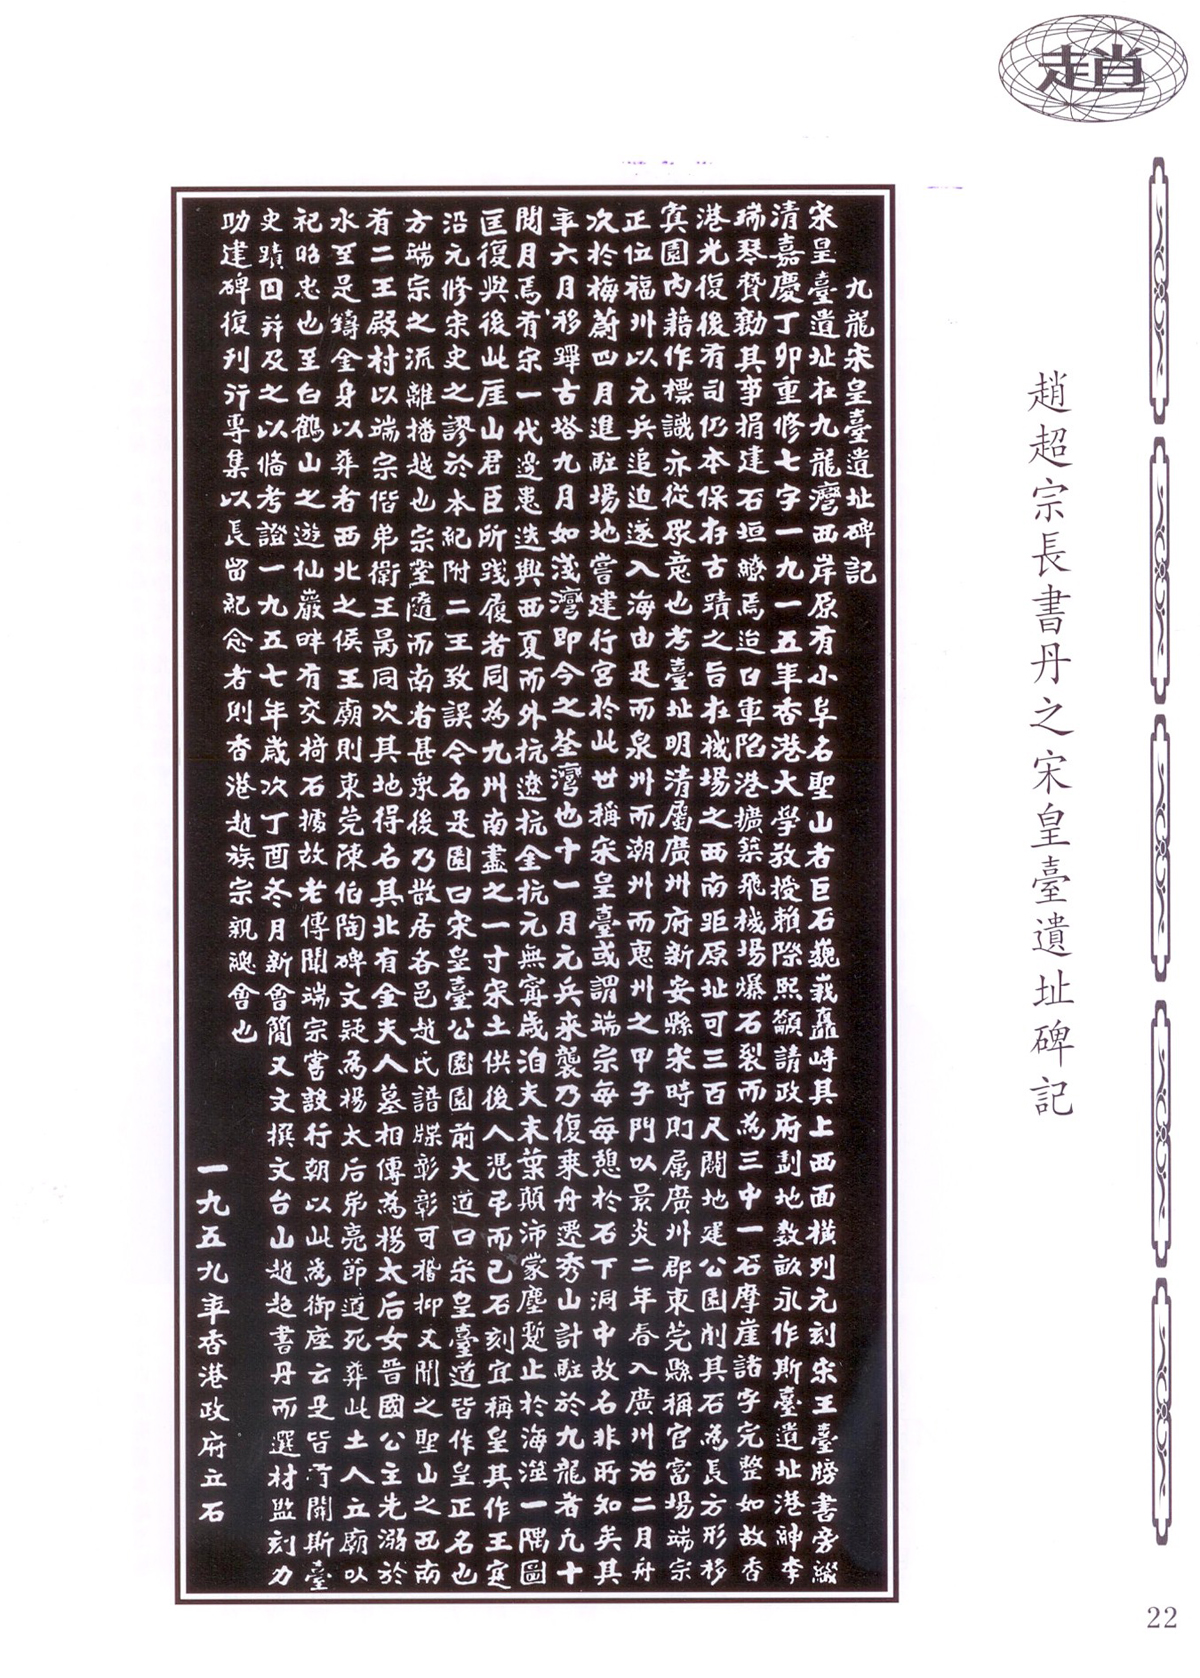 趙
趙超宗長書丹之宋皇臺遺址碑記
九龍宋皇臺遺址碑記
宋皇臺遺址在九龍灣西岸原有小阜名聖山者巨石巍峩矗峙其上西面橫列元刻宋王臺牓書旁綴
清嘉慶丁卯重修七字一九一五年香港大學教授賴際熙籲請政府劃地數畝永作斯臺遺址港紳李
瑞琴贊勷其事捐建石垣繚焉迨日軍陷港擴築飛機場爆石裂而為三中一石摩崖諸字完整如故香
港光復後有司仍本保存古蹟之旨在機場之西南距原址可三百尺闢地建公園削其石為長方形移
寘園內藉作標識亦從眾意也考臺址明清屬廣州府新安縣宋時則屬廣州郡東莞縣稱官富場端宗
正位福州以元兵追迫遂入海由是而泉州而潮州而惠州之甲子門以景炎二年春入廣州治二月舟
次於梅蔚四月進駐場地嘗建行宮於此世稱宋皇臺或謂端宗每每憩於石下洞中故名非所知矣其
年六月移蹕古塔九月如淺灣即今之荃灣也十一月元兵來襲乃復乘舟遷秀山計駐於九龍者凡十
閱月焉有宋一代邊患迭興西夏而外抗遼抗金抗元無甯歲洎夫末葉顛沛蒙塵暫止於海澨一隅圖
匡復興後此厓山君臣所踐履者同為九州南盡之一寸宋土供後人憑弔而已石刻宜稱皇其作王寔
沿元修宋史之謬於本紀附二王致誤今名是園曰宋皇臺公園園前大道曰宋皇臺道皆作皇正名也
方端宗之流離播越也宗室隨而南者甚眾後乃散居各邑趙氏譜牒彰彰可稽抑又聞之聖山之西南
有二王殿村以端宗偕弟衛王昺同次其地得名其北有金夫人墓相傳為楊太后女晉國公主先溺於
水至是鑄金身以葬者西北之侯王廟則東莞陳伯陶碑文疑為楊太后弟亮節道死葬此土人立廟以
祀昭忠也至白鶴山之遊仙巖畔有交椅石據故老傳聞端宗嘗設行朝以此為御座云是皆有關斯臺
史蹟因并及之以俻考證一九五七年歲次丁酉冬月新會簡又文撰文台山趙超書丹而選材監刻力
助建碑復刊行專集以長留紀念者則香港趙族宗親總會也
一九五九年香港政府立石
22